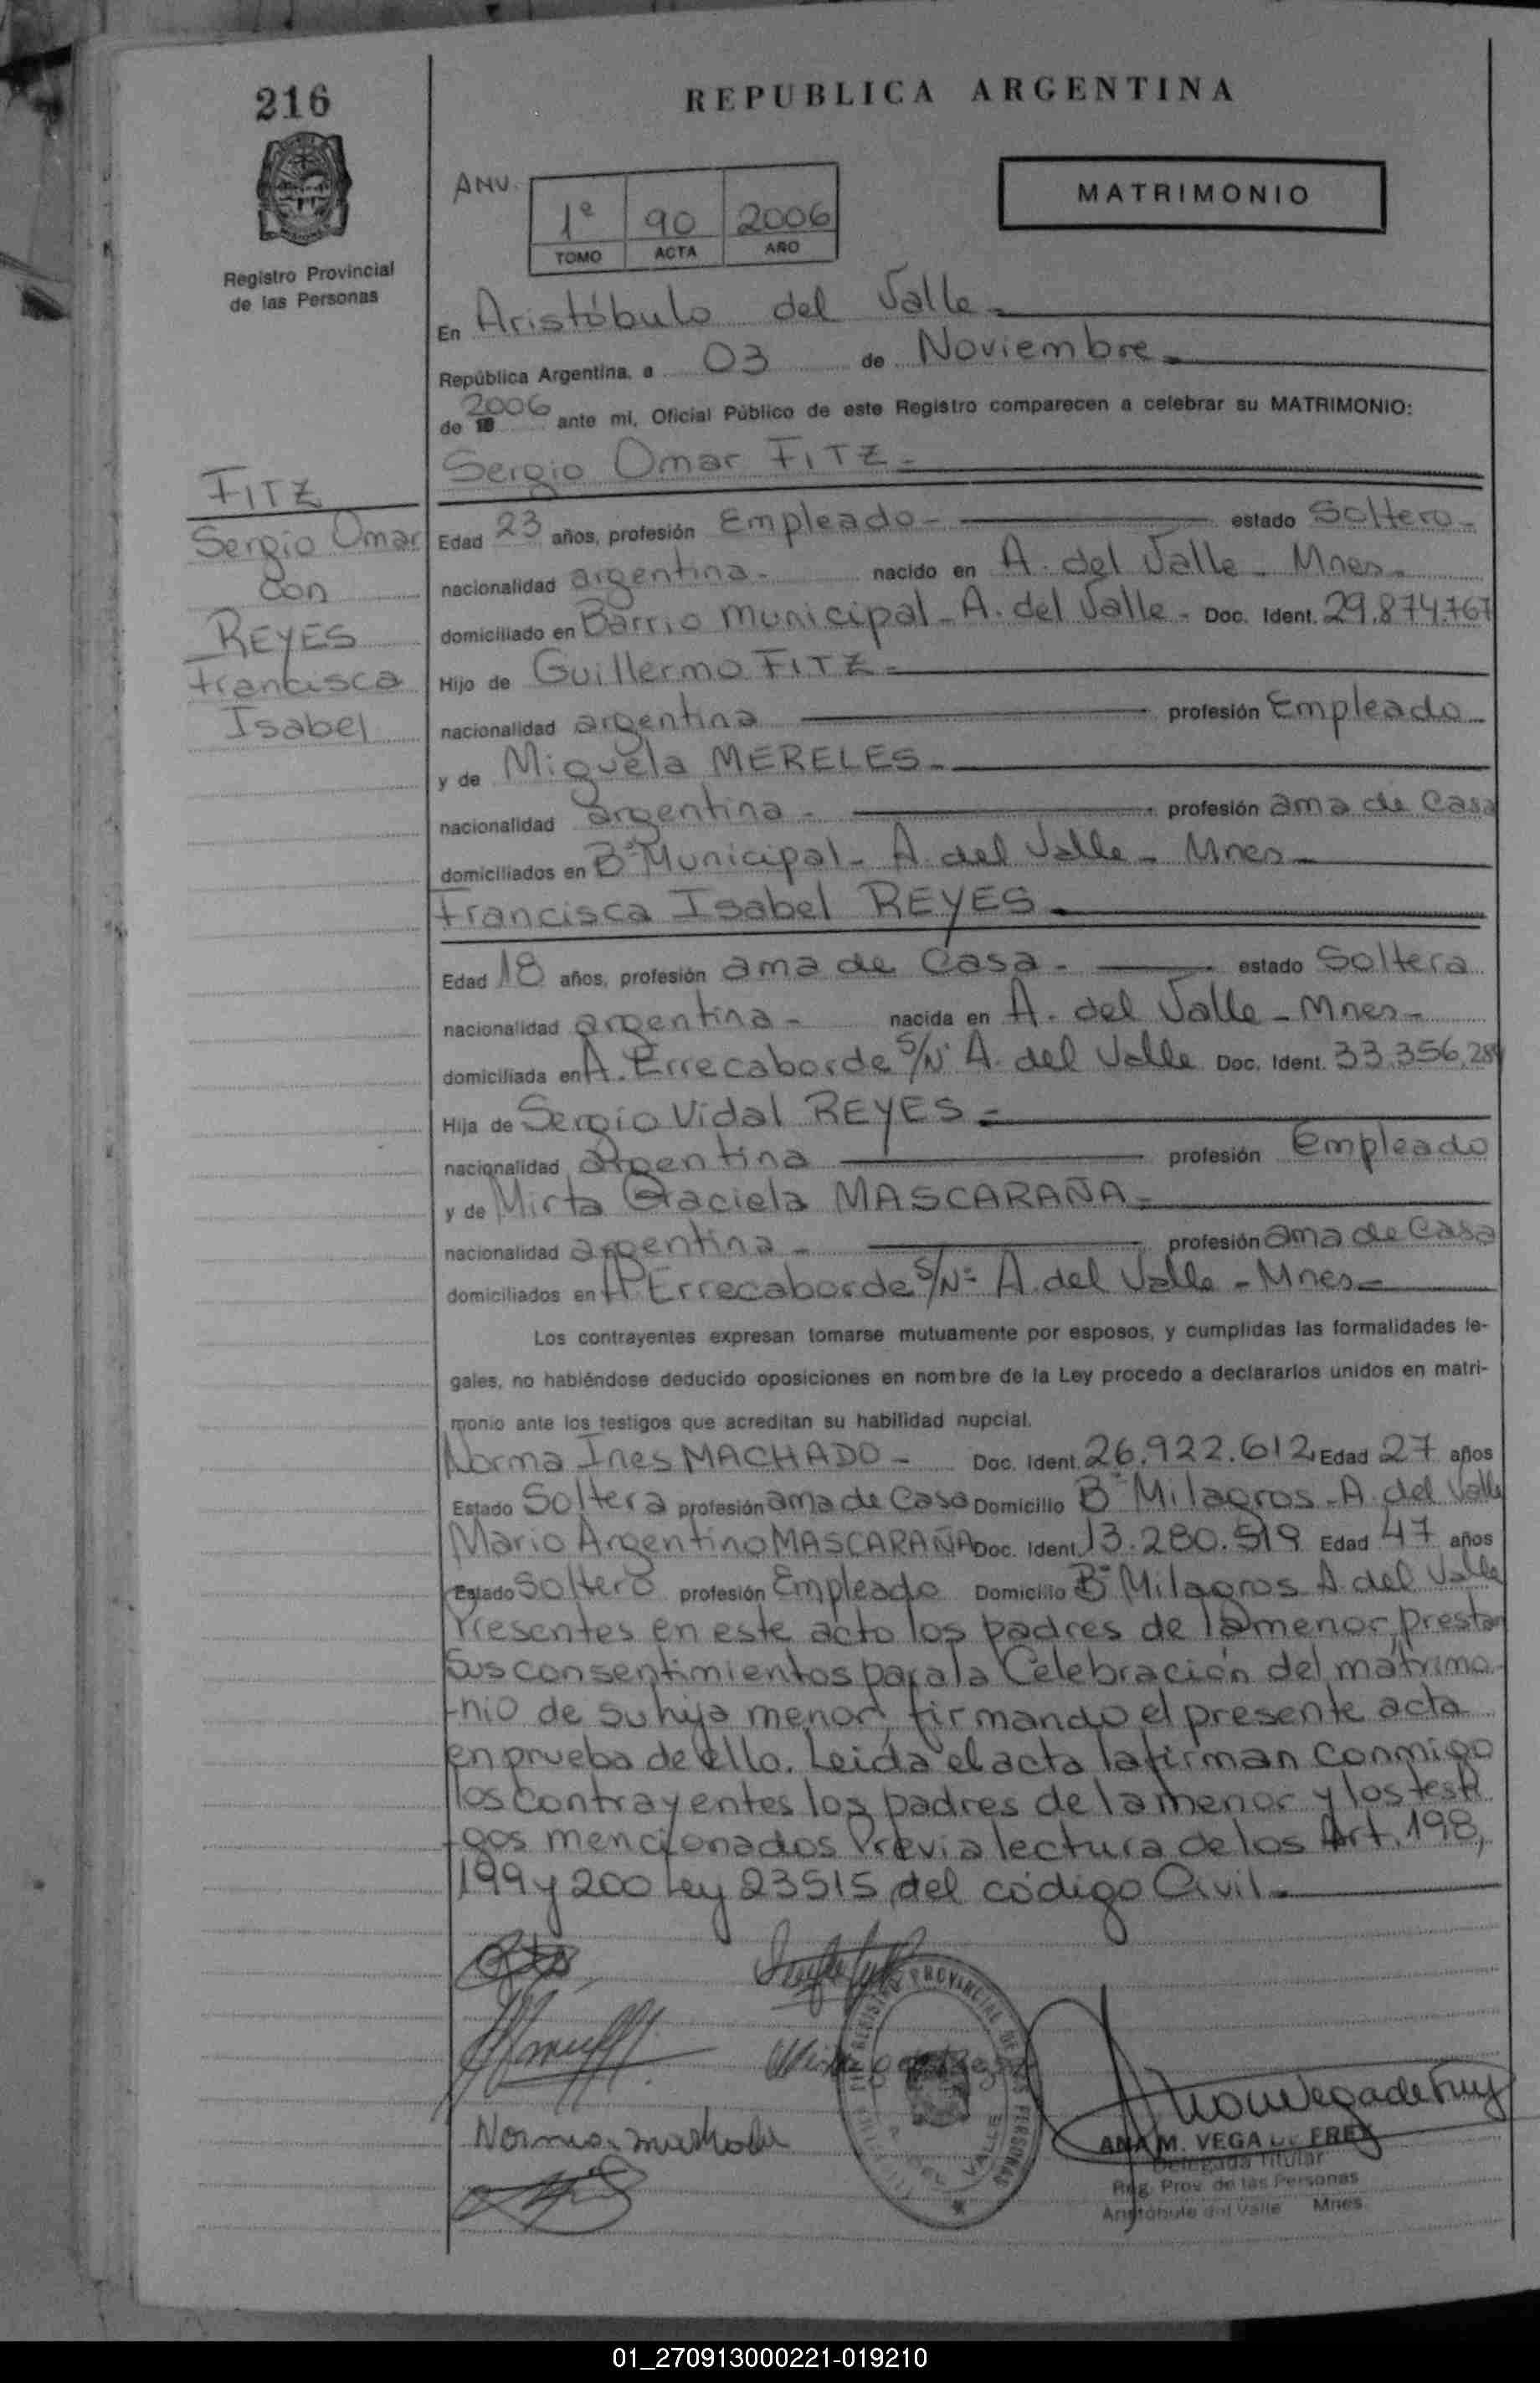 216
REPUBLICA ARGENTINA
ANV.
1º 90 2006
TOMO ACTA AÑO
MATRIMONIO
Registro Provincial
de las Personas
En Aristóbulo del Valle
República Argentina, a 03 de Noviembre
de 2006 ante mi, Oficial Público de este Registro comparecen a celebrar su MATRIMONIO:
Sergio Omar FITZ
FITZ
Sergio Omar
con
REYES
Francisca
Isabel
Edad 23 años, profesión Empleado - estado Soltero -
nacionalidad argentina - nacido en A. del Valle - Mnes -
domiciliado en Barrio Municipal - A. del Valle - Doc. Ident. 29.874.767
Hijo de Guillermo FITZ
nacionalidad argentina profesión Empleado
y de Miguela MERELES -
nacionalidad argentina - profesión ama de Casa
domiciliados en Bº Municipal - A. del Valle - Mnes -
Francisca Isabel REYES
Edad 18 años, profesión ama de Casa - estado Soltera
nacionalidad argentina - nacida en A. del Valle - Mnes -
domiciliada en A. Errecaborde S/Nº A. del Valle Doc. Ident. 33.356.
Hija de Sergio Vidal REYES
nacionalidad argentina profesión Empleado
y de Mirta Graciela MASCARAÑA
nacionalidad argentina - profesión ama de Casa
domiciliados en A. Errecaborde S/Nº A. del Valle - Mnes
Los contrayentes expresan tomarse mutuamente por esposos, y cumplidas las formalidades le-
gales, no habiéndose deducido oposiciones en nombre de la Ley procedo a declararlos unidos en matri-
monio ante los testigos que acreditan su habilidad nupcial.
Norma Ines MACHADO - Doc. Ident. 26.922.612 Edad 27 años
Estado Soltera profesión ama de Casa Domicilio Bº Milagros - A. del Valle
Mario Argentino MASCARAÑA Doc. Ident. 13.280.519 Edad 47 años
Estado Soltero profesión Empleado Domicilio Bº Milagros A. del Valle
Presentes en este acto los padres de la menor, prestan
sus consentimientos para la Celebración del matrimo-
-nio de su hija menor, firmando el presente acta
en prueba de ello. Leida el acta la firman conmigo
los contrayentes los padres de la menor y los testi-
-gos mencionados Previa lectura de los Art. 198,
199 y 200 Ley 23515 del código Civil
REGISTRO PROVINCIAL DE LAS PERSONAS
DEL VALLE
Norma
ANA M. VEGA DE FREY
Delegada Titular
Reg. Prov. de las Personas
Aristóbulo del Valle Mnes
01_270913000221-019210